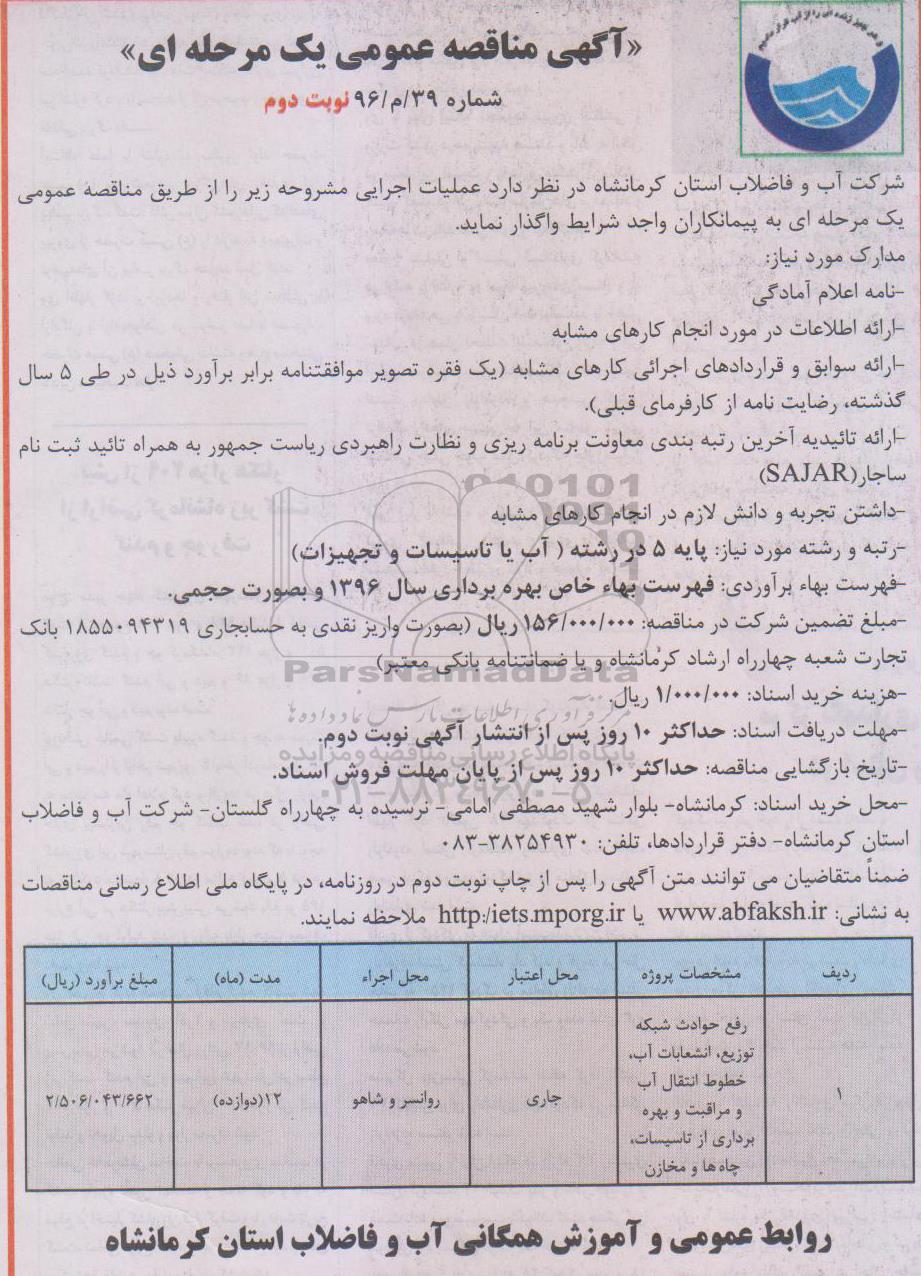 «آگهی مناقصه عمومی یک مرحله ای»
شماره ۳۹/م/۹۶ نوبت دوم
شرکت آب و فاضلاب استان کرمانشاه در نظر دارد عملیات اجرایی مشروحه زیر را از طریق مناقصه عمومی
یک مرحله ای به پیمانکاران واجد شرایط واگذار نماید.
مدارک مورد نیاز:
-نامه اعلام آمادگی
-ارائه اطلاعات در مورد انجام کارهای مشابه
-ارائه سوابق و قراردادهای اجرائی کارهای مشابه (یک فقره تصویر موافقتنامه برابر برآورد ذیل در طی ۵ سال
گذشته، رضایت نامه از کارفرمای قبلی).
-ارائه تائیدیه آخرین رتبه بندی معاونت برنامه ریزی و نظارت راهبردی ریاست جمهور به همراه تائید ثبت نام
ساجار(SAJAR)
-داشتن تجربه و دانش لازم در انجام کارهای مشابه
-رتبه و رشته مورد نیاز: پایه ۵ در رشته ( آب یا تاسیسات و تجهیزات)
-فهرست بهاء برآوردی: فهرست بهاء خاص بهره برداری سال ۱۳۹۶ و بصورت حجمی.
-مبلغ تضمین شرکت در مناقصه: ۱۵۶/۰۰۰/۰۰۰ ریال (بصورت واریز نقدی به حسابجاری ۱۸۵۵۰۹۴۳۱۹ بانک
تجارت شعبه چهارراه ارشاد کرمانشاه و یا ضمانتنامه بانکی معتبر)
-هزینه خرید اسناد: ۱/۰۰۰/۰۰۰ ریال.
-مهلت دریافت اسناد: حداکثر ۱۰ روز پس از انتشار آگهی نوبت دوم.
-تاریخ بازگشایی مناقصه: حداکثر ۱۰ روز پس از پایان مهلت فروش اسناد.
-محل خرید اسناد: کرمانشاه- بلوار شهید مصطفی امامی - نرسیده به چهارراه گلستان- شرکت آب و فاضلاب
استان کرمانشاه- دفتر قراردادها، تلفن: ۳۸۲۵۴۹۳۰-۰۸۳
ضمناً متقاضیان می توانند متن آگهی را پس از چاپ نوبت دوم در روزنامه، در پایگاه ملی اطلاع رسانی مناقصات
به نشانی: www.abfaksh.ir یا http:/iets.mporg.ir ملاحظه نمایند.
ردیف مشخصات پروژه محل اعتبار محل اجراء مدت (ماه) مبلغ برآورد (ریال)
رفع حوادث شبکه
توزیع، انشعابات آب،
خطوط انتقال آب
۱ و مراقبت و بهره جاری روانسر و شاهو ۱۲(دوازده) ۲/۵۰۶/۰۴۳/۶۶۲
برداری از تاسیسات،
چاه ها و مخازن
روابط عمومی و آموزش همگانی آب و فاضلاب استان کرمانشاه
ParsNamadData
مرکز فرآوری اطلاعات پارس نماد داده ها
پایگاه اطلاع رسانی مناقصه و مزایده
۰۲۱-۸۸۳۴۹۶۷۰-۵